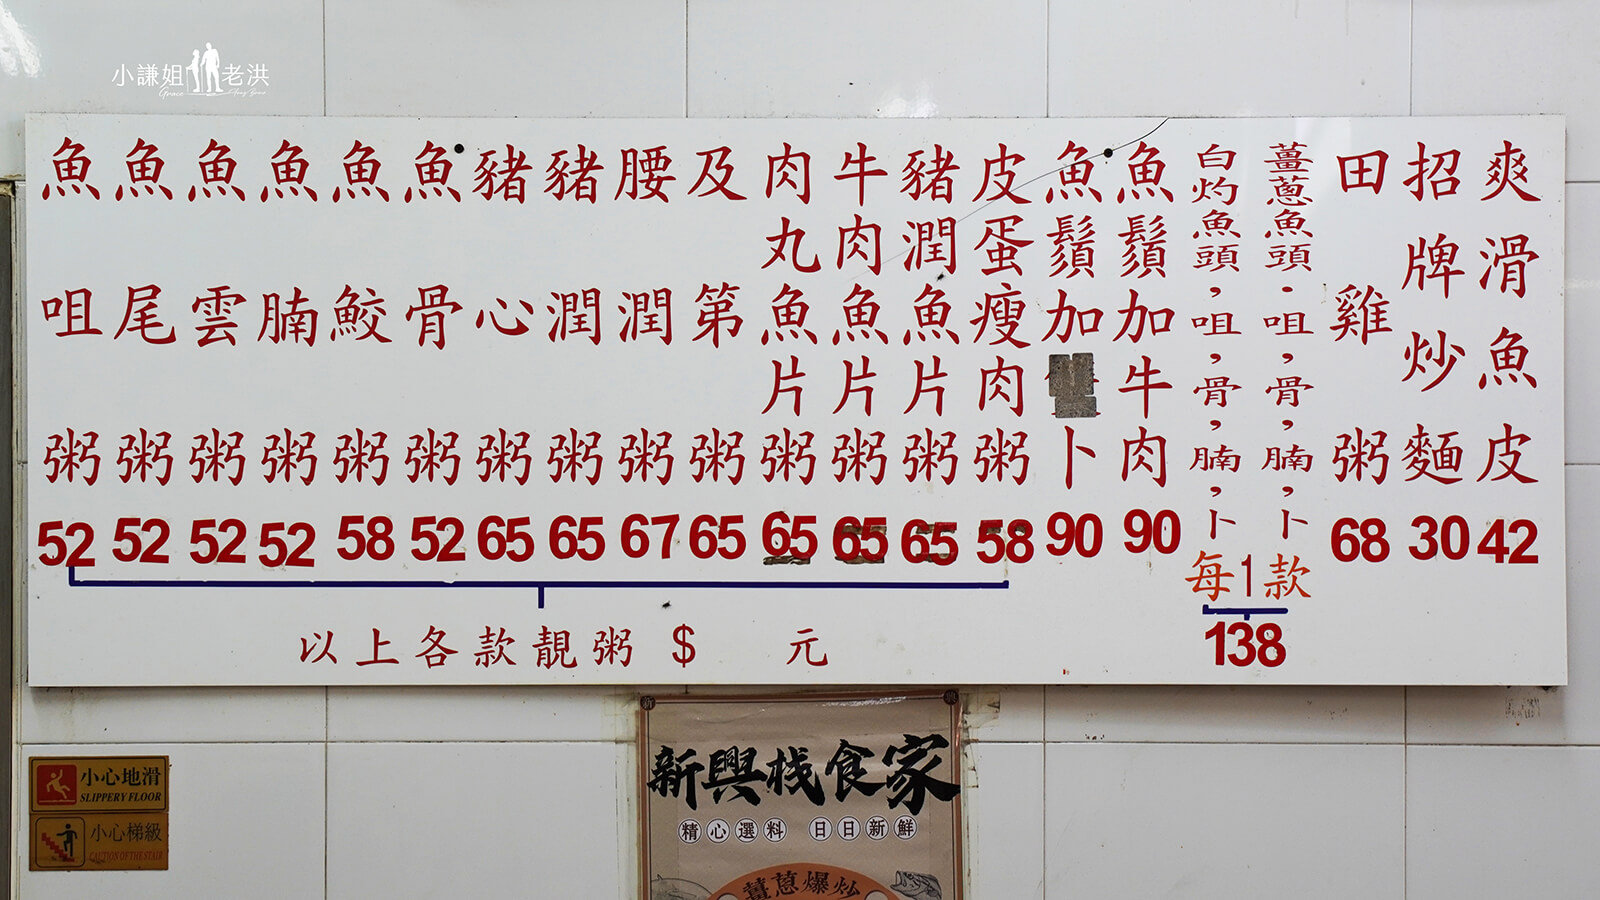 小謙姐 老洪
魚咀粥 52
魚尾粥 52
魚雲粥 52
魚腩粥 52
魚鮫粥 58
魚骨粥 52
豬心粥 65
豬潤粥 65
腰潤粥 67
及第粥 65
肉丸魚片粥 65
牛肉魚片粥 65
豬潤魚片粥 65
皮蛋瘦肉粥 58
魚鬚加 卜 90
魚鬚加牛肉 90
白灼魚頭，咀，骨，腩，卜
薑蔥魚頭·咀，骨，腩，卜
每1款
138
田雞粥 68
招牌炒麵 30
爽滑魚皮 42
以上各款靚粥 $ 元
新興棧食家
精心選料 日日新鮮
薑蔥爆炒
小心地滑
SLIPPERY FLOOR
小心梯級
CAUTION OF THE STAIR